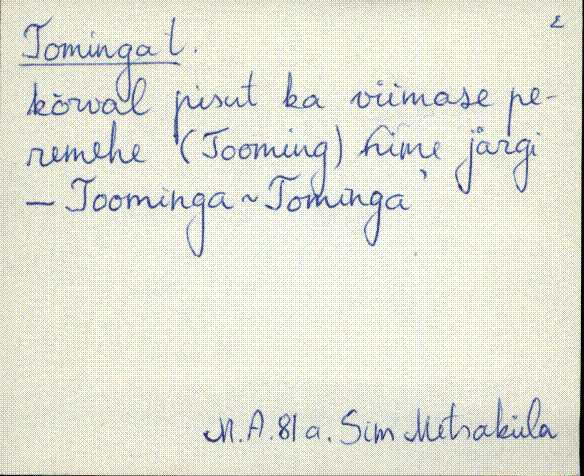 2
Tominga t.
kõrval pisut ka viimase pe-
remehe (Tooming) nime järgi
— Toominga ~ Tominga
M.A. 81 a. Sim Metsaküla